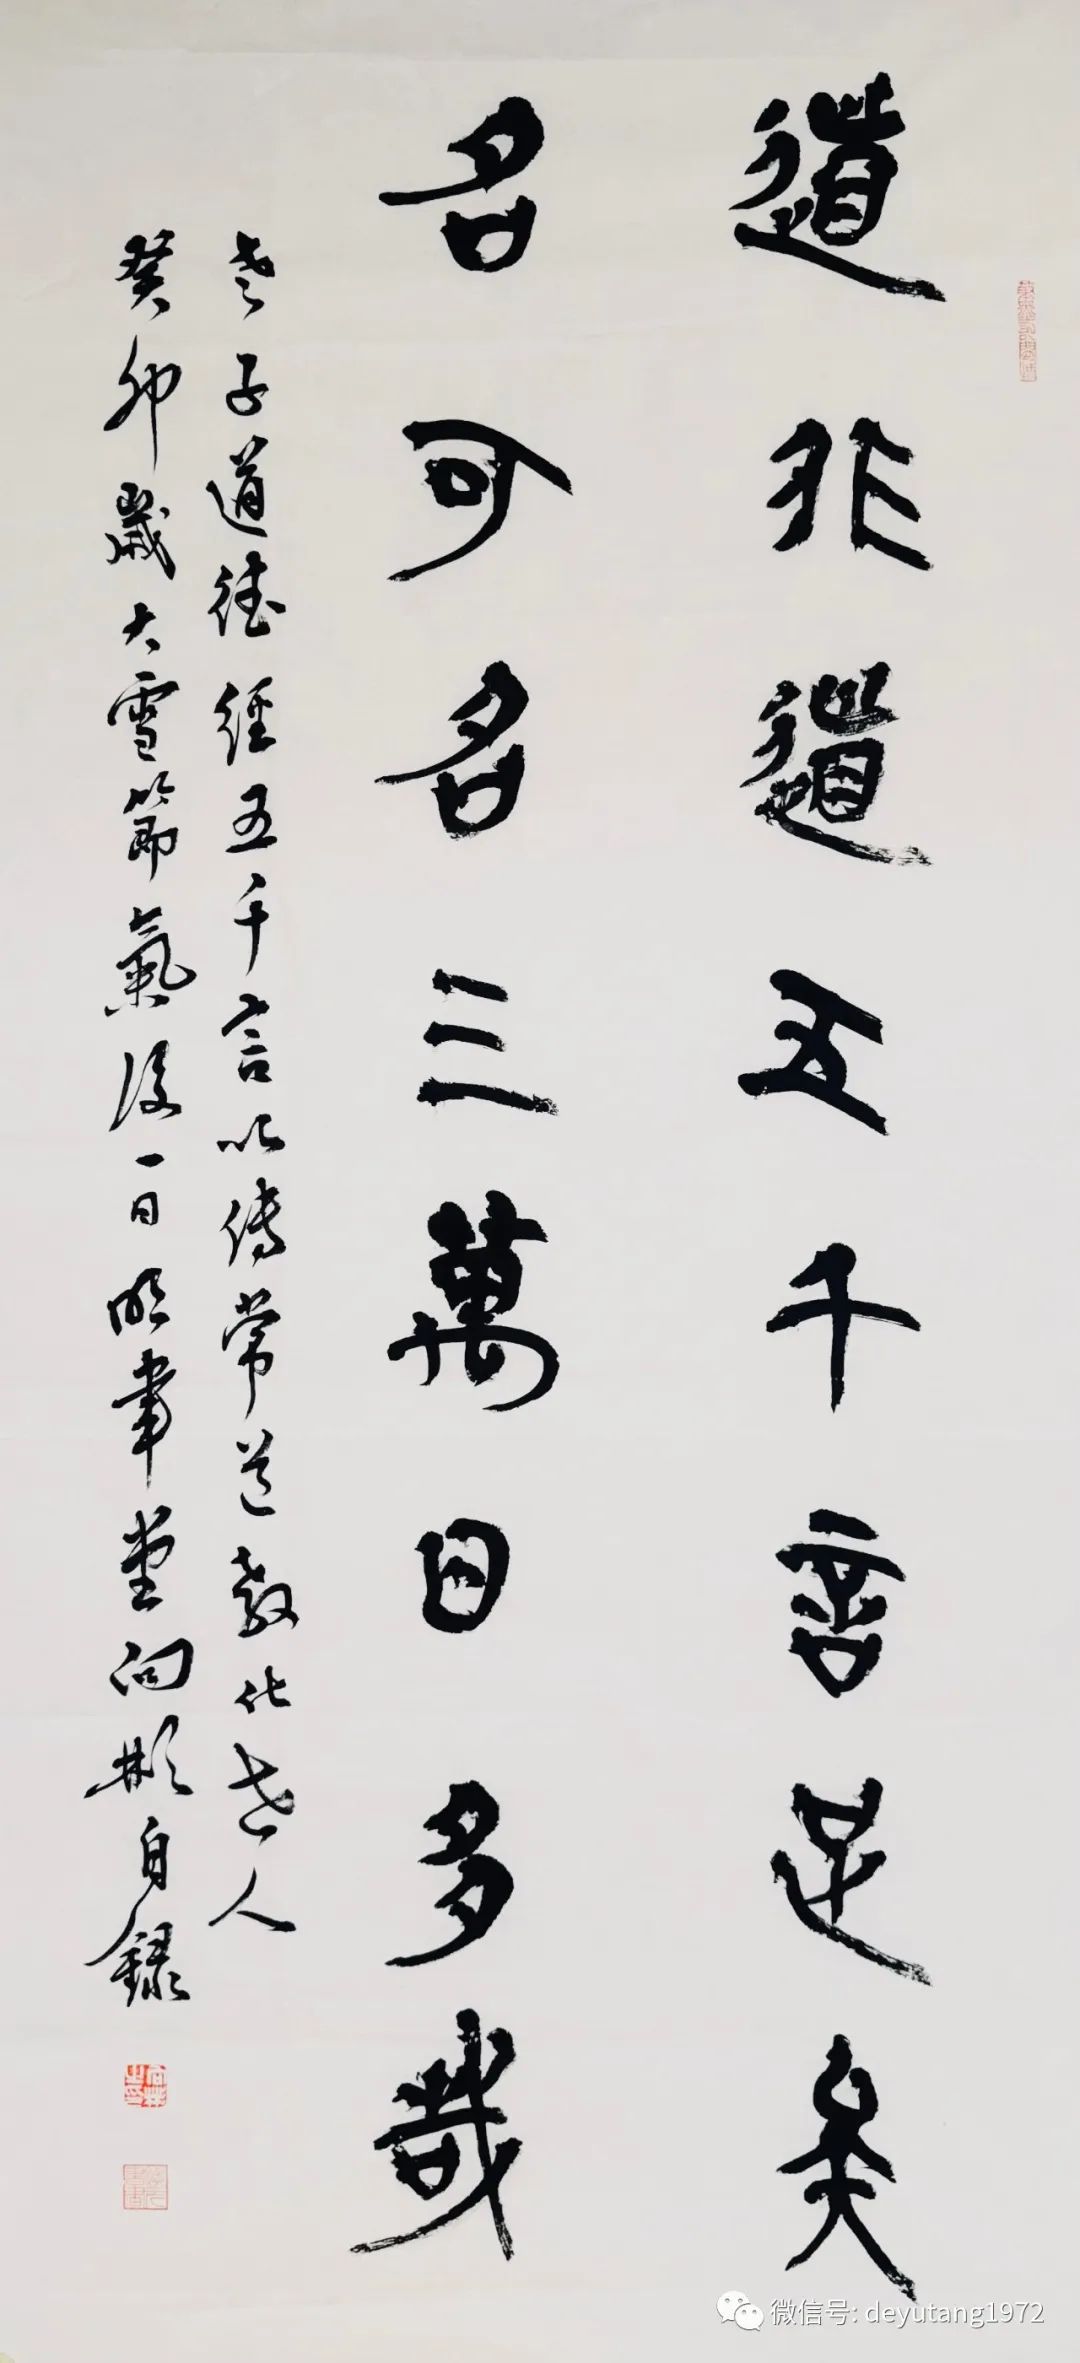 道非道五千言足矣
名可名三萬日多哉
老子道德經五千言以傳常道教化世人
癸卯歲大雪節氣後一日明聿堂向彬自錄
微信号: deyutang1972